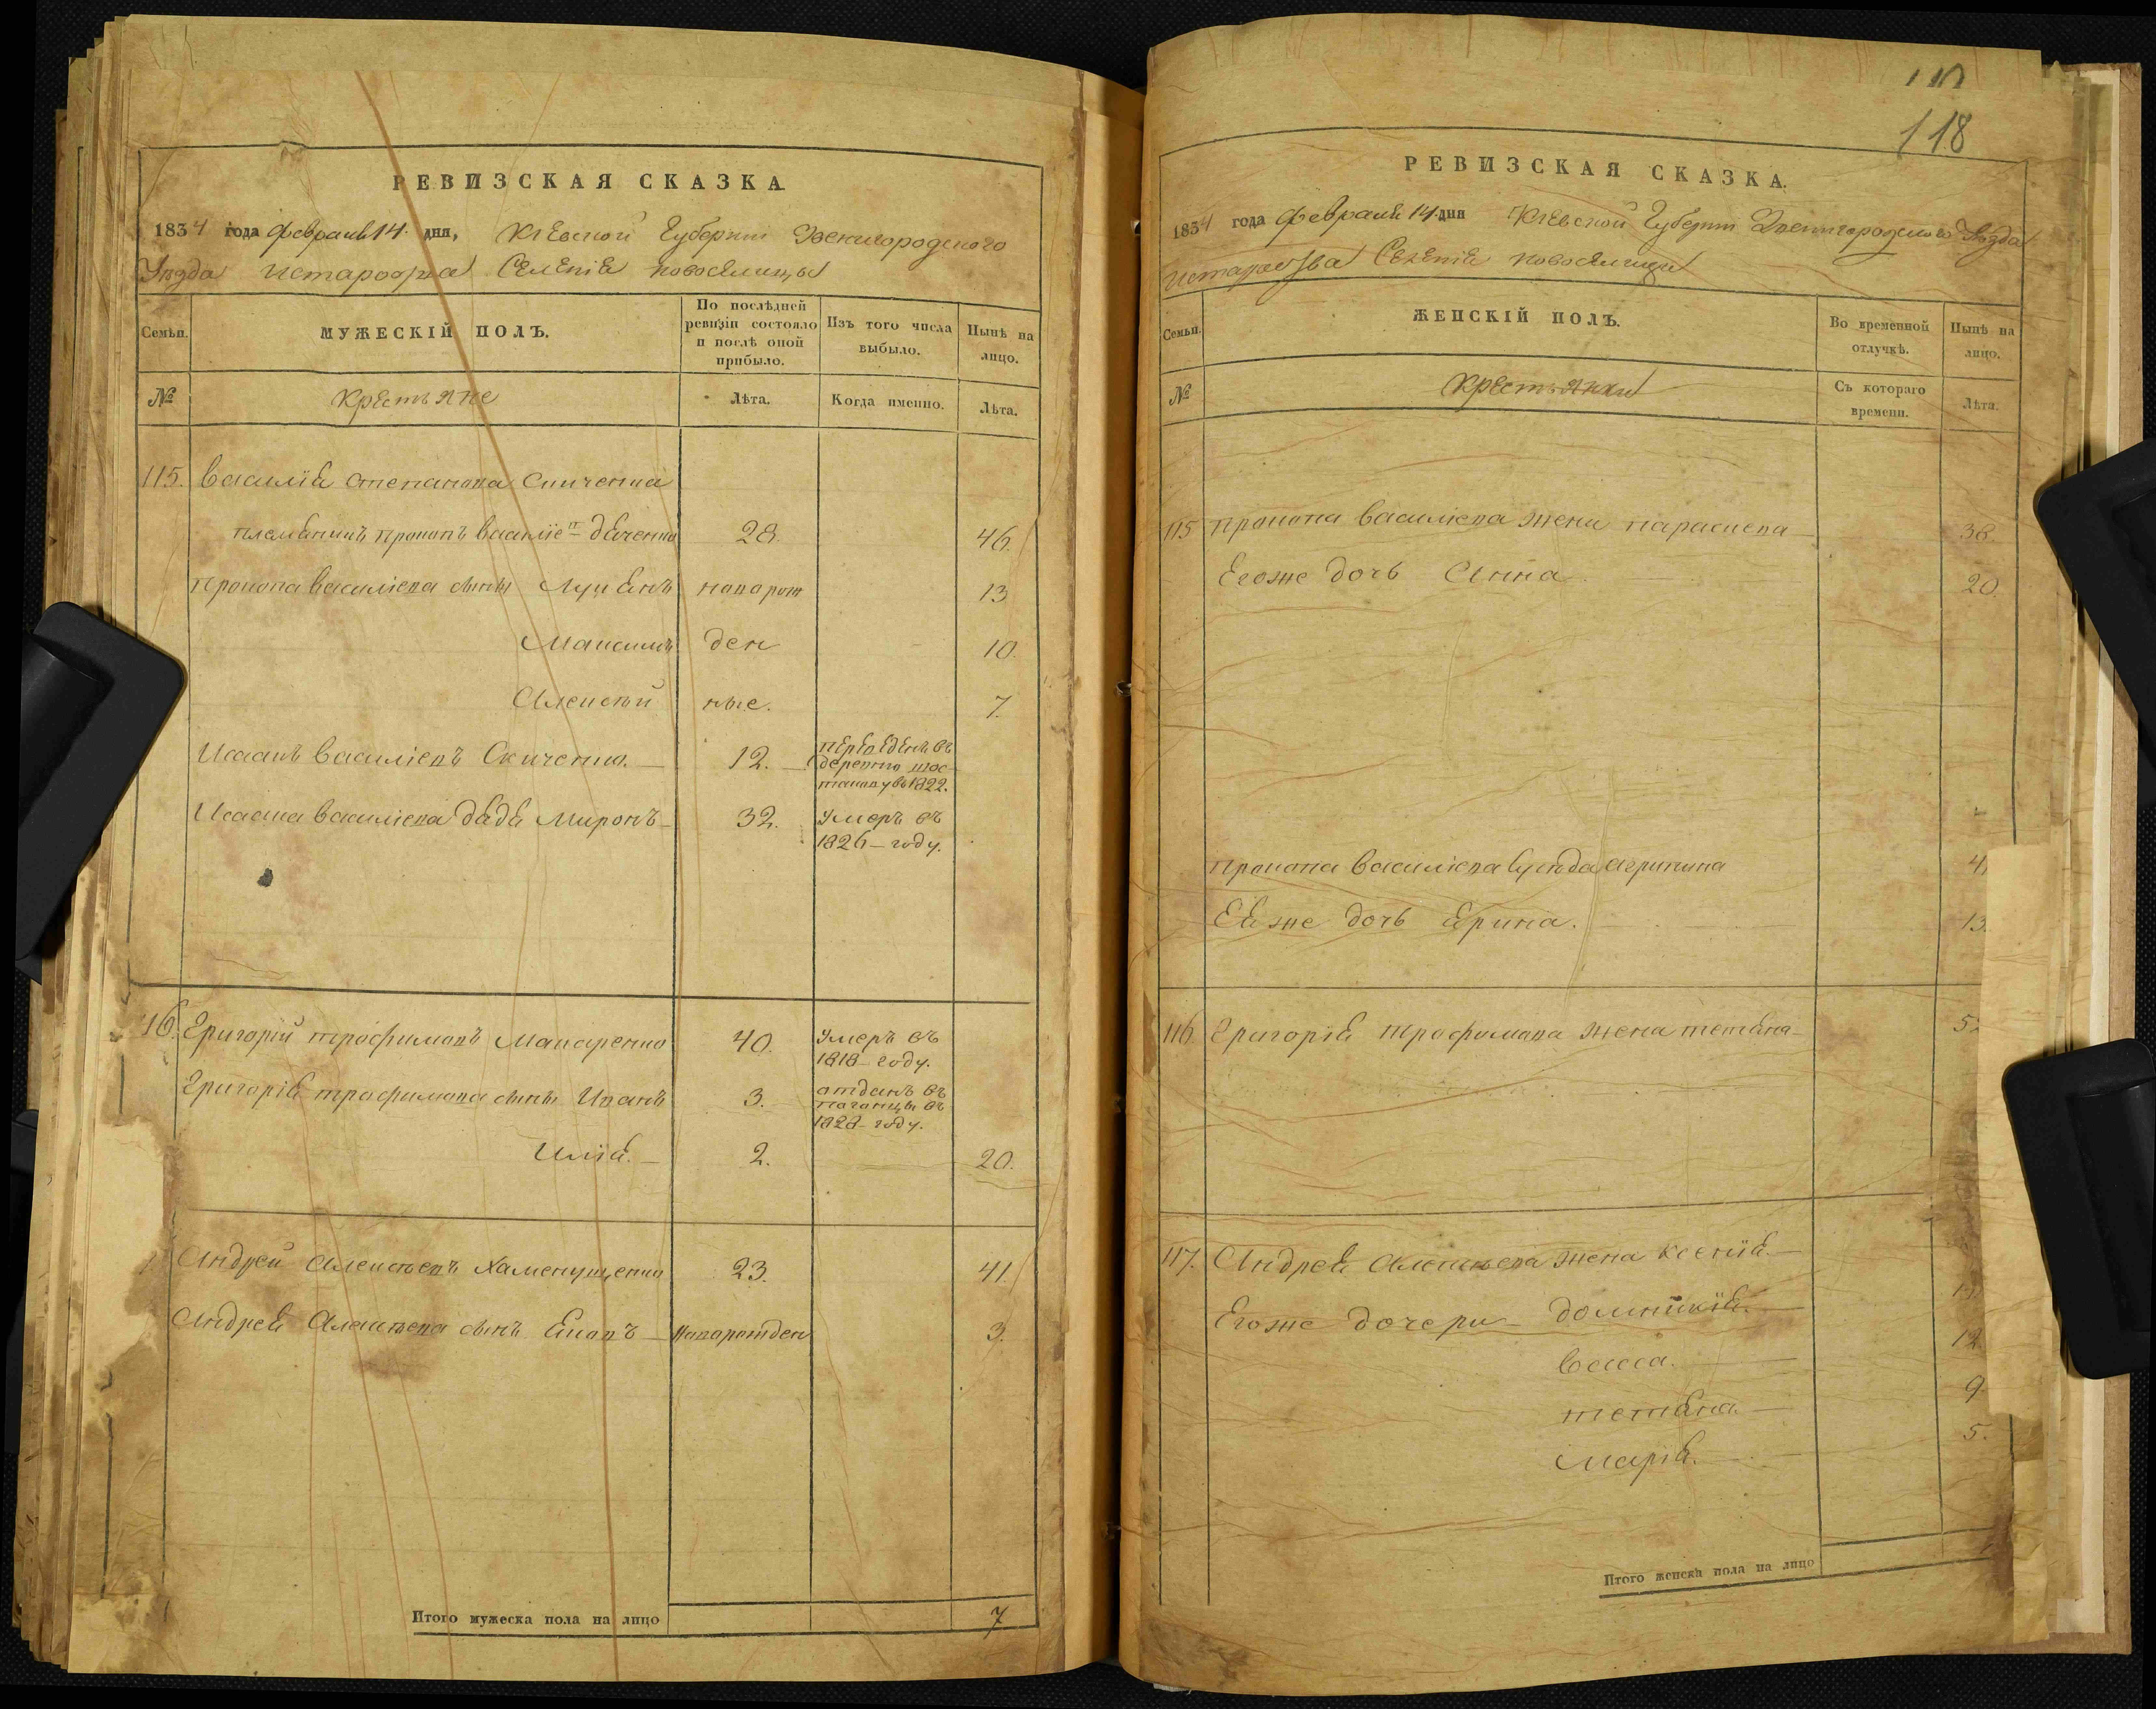 РЕВИЗСКАЯ СКАЗКА
1834 года февраля 14. дня, Кіевской Губерніи Звенигородскаго
Уезда Истароства Селеніе новоселицы
Семьи.
МУЖЕСКІЙ ПОЛЪ.
По послѣдней ревизіи состояло и послѣ оной прибыло.
Изъ того числа выбыло.
Нынѣ на лицо.
№
Крестьяне
Лѣта.
Когда именно.
Лѣта.
115. Василія степанова Скиченка
племянникъ прокопъ василіе 28. 46.
прокопа василіева сыны Лукянъ напорож 13
Максимъ ден 10.
Алексѣй ные. 7.
Исакъ василіевъ Скиченко. 12. переведенъ въ деревню 1822.
Исака василіева дядя Миронъ 32. Умеръ въ 1826 году.
16. Григорій трофимовъ Макаренко 40. Умеръ въ 1818 году.
Григорія трофимова сыны Иванъ 3. отданъ въ 1828 году.
Илія. 2. 20.
Андрей Алексѣевъ 23. 41
Андрея Алексѣева сынъ напоротден 3.
Итого мужеска пола на лицо 7
118
РЕВИЗСКАЯ СКАЗКА.
1834 года февраля 14. дня Кіевской Губерніи Звенигородскаго Уезда
Истароства Селеніе новоселицы
Семьи.
ЖЕНСКІЙ ПОЛЪ.
Во временной отлучкѣ.
Нынѣ на лицо.
№
Крестьянки
Съ котораго времени.
Лѣта.
115 прокопа василіева жена параскева 38.
Егоже дочь Анна 20.
прокопа василіева агрипина 4
Ея же дочь Ярина. 13.
116. Григорія трофимова жена тетяна 5
117. Андрея Алексѣева жена ксенія
Егоже дочери домникія.
васса. 12
тетяна. 9
Марія. 5.
Итого женска пола на лицо